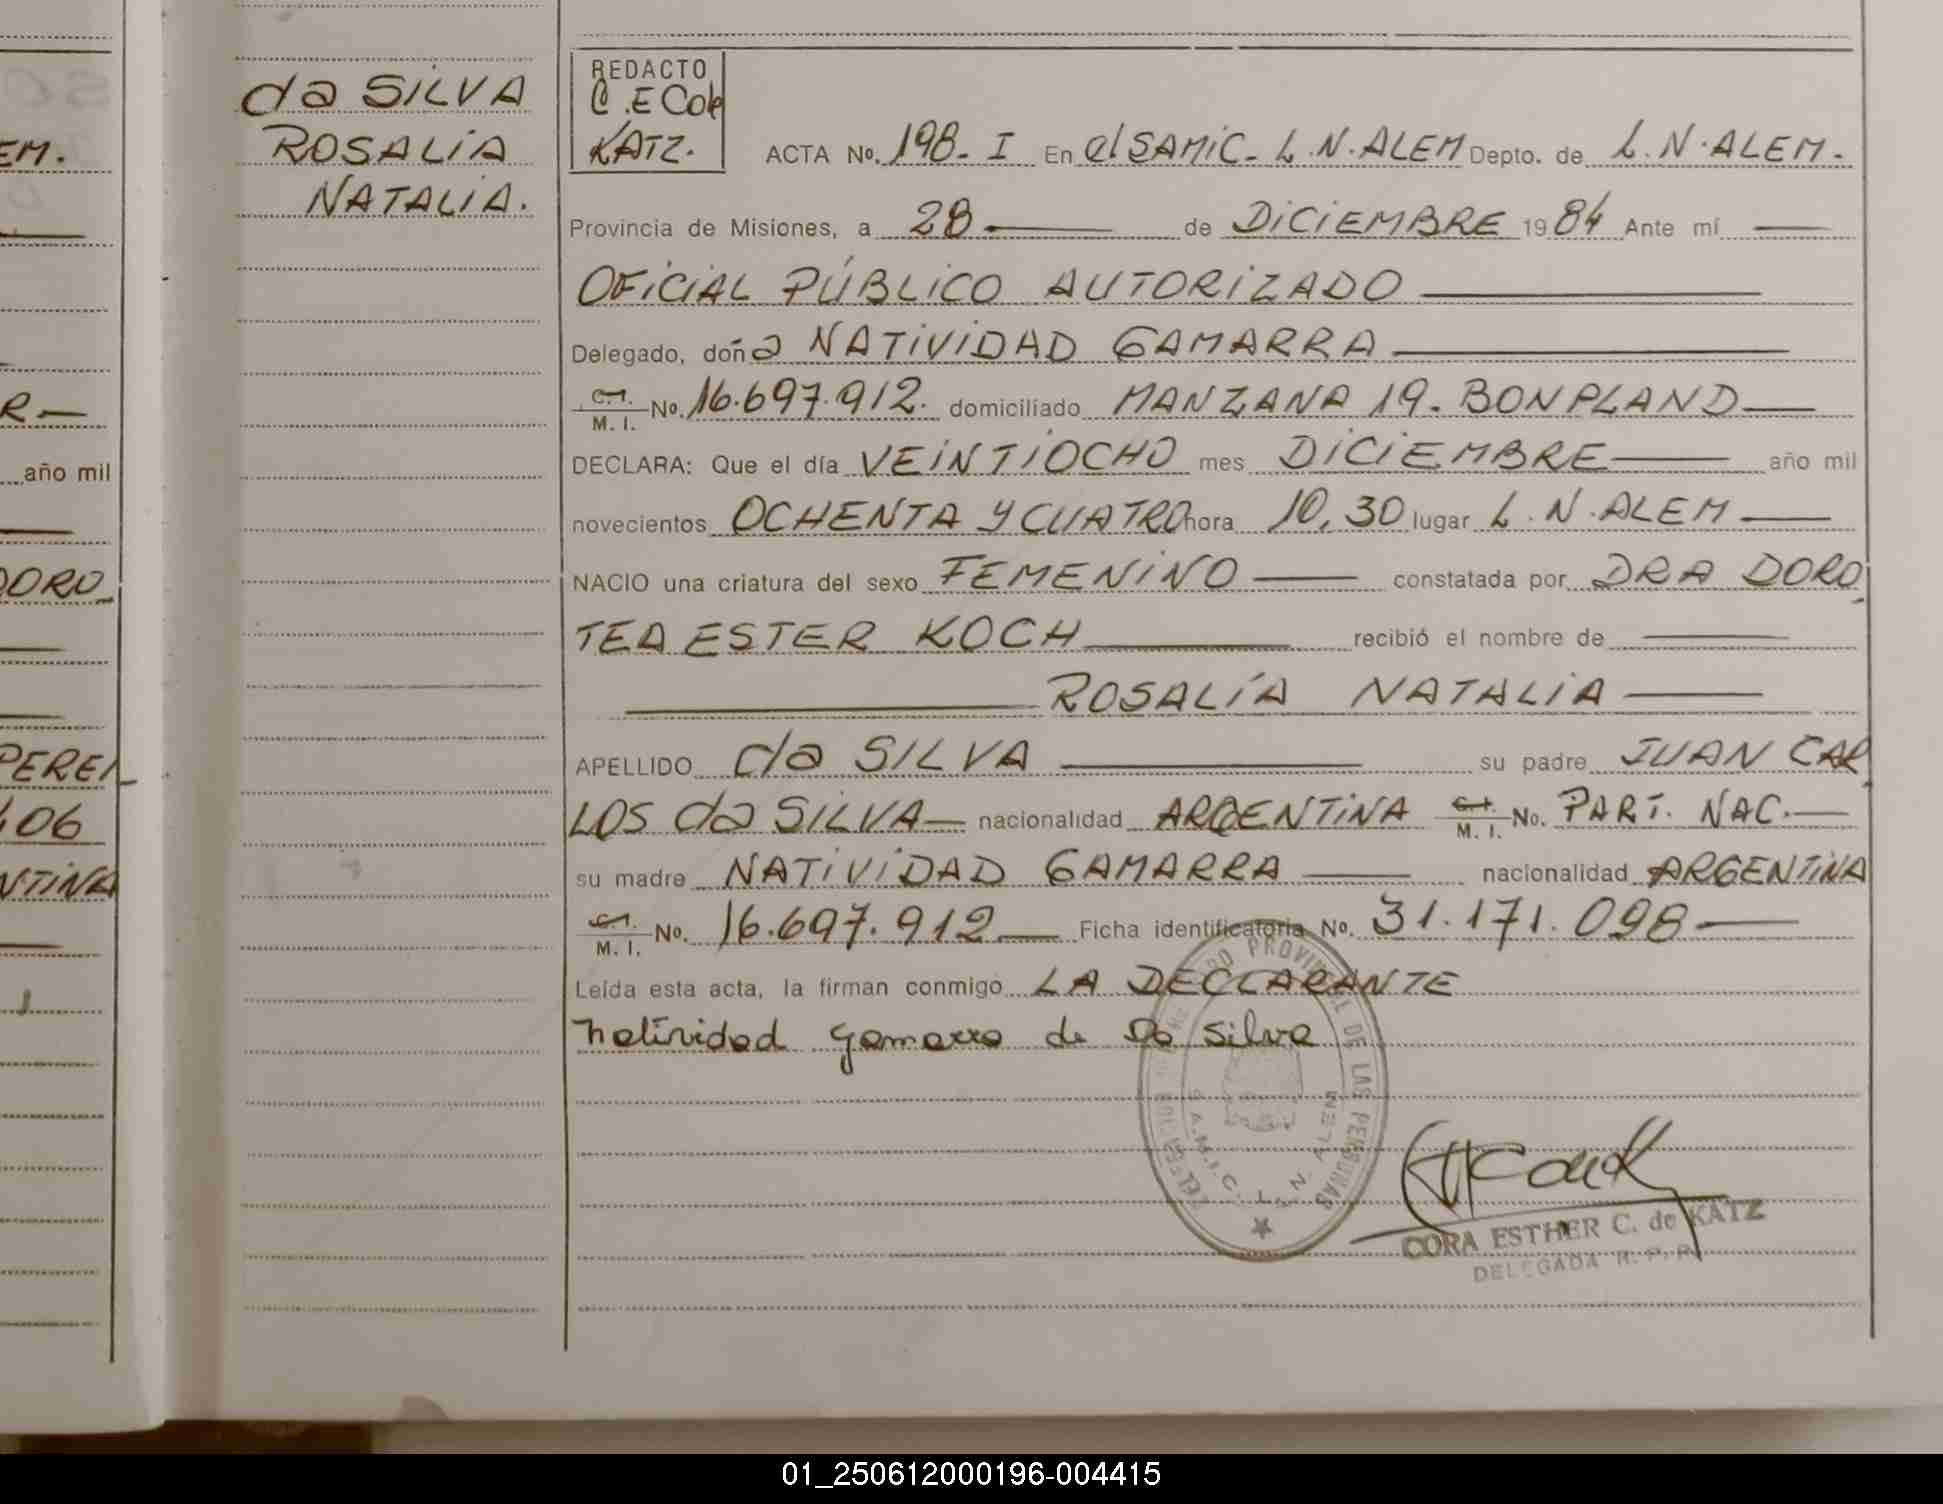 da SILVA
ROSALIA
NATALIA.
REDACTO
C.E C de
KATZ.
ACTA No. 198- I En el SAMIC- L.N.ALEM Depto. de L.N.ALEM.
Provincia de Misiones, a 28 de DICIEMBRE 1984 Ante mí
OFICIAL PÚBLICO AUTORIZADO
Delegado, doña NATIVIDAD GAMARRA
C.I. M. I. No. 16.697.912. domiciliado MANZANA 19. BONPLAND
DECLARA: Que el día VEINTIOCHO mes DICIEMBRE año mil
novecientos OCHENTA Y CUATRO hora 10,30 lugar L.N.ALEM
NACIO una criatura del sexo FEMENINO constatada por DRA DORO
TEA ESTER KOCH recibió el nombre de
ROSALÍA NATALIA
APELLIDO da SILVA su padre JUAN CAR
LOS da SILVA nacionalidad ARGENTINA C.I. M. I. No. PART. NAC.
su madre NATIVIDAD GAMARRA nacionalidad ARGENTINA
C.I. M. I. No. 16.697.912 Ficha identificatoria No. 31.171.098
Leída esta acta, la firman conmigo LA DECLARANTE
Natividad Gamarra de Da Silva
PROVINCIAL DE LAS PERSONAS
S.A.M.I.C. L.N. ALEM
CORA ESTHER C. de KATZ
DELEGADA R. P. P.
EM.
R
año mil
DORO
PEREI
406
NTINA
01_250612000196-004415